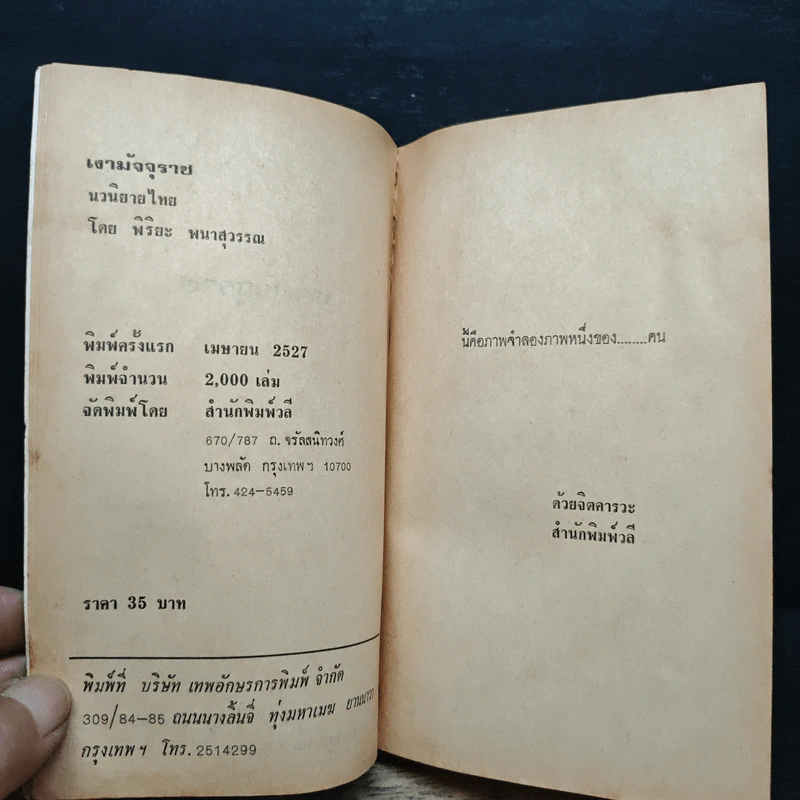 เงามัจจุราช
นวนิยายไทย
โดย พิริยะ พนาสุวรรณ
พิมพ์ครั้งแรก เมษายน 2527
พิมพ์จำนวน 2,000 เล่ม
จัดพิมพ์โดย สำนักพิมพ์วลี
670/787 ถ. จรัลสนิทวงศ์
บางพลัด กรุงเทพฯ 10700
โทร. 424-5459
ราคา 35 บาท
พิมพ์ที่ บริษัท เทพอักษรการพิมพ์ จำกัด
309/84-85 ถนนนางลิ้นจี่ ทุ่งมหาเมฆ ยานนาวา
กรุงเทพฯ โทร. 2514299
นี้คือภาพจำลองภาพหนึ่งของ........คน
ด้วยจิตคารวะ
สำนักพิมพ์วลี